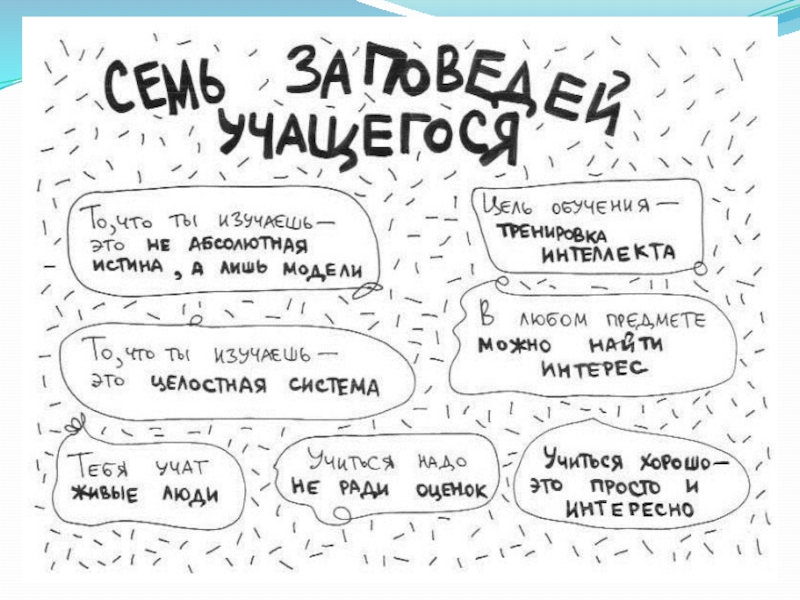 СЕМЬ ЗАПОВЕДЕЙ
УЧАЩЕГОСЯ
То, что ты изучаешь —
это не абсолютная
истина, а лишь модели
Цель обучения —
тренировка
интеллекта
То, что ты изучаешь —
это целостная система
В любом предмете
можно найти
интерес
Тебя учат
живые люди
Учиться надо
не ради оценок
Учиться хорошо —
это просто и
интересно